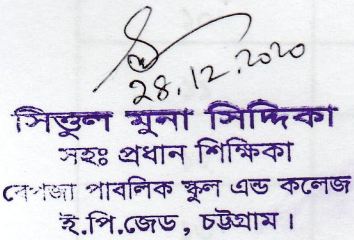 28.12.2020
সিত্তুল মুনা সিদ্দিকা
সহঃ প্রধান শিক্ষিকা
বেপজা পাবলিক স্কুল এন্ড কলেজ
ই.পি.জেড, চট্টগ্রাম।